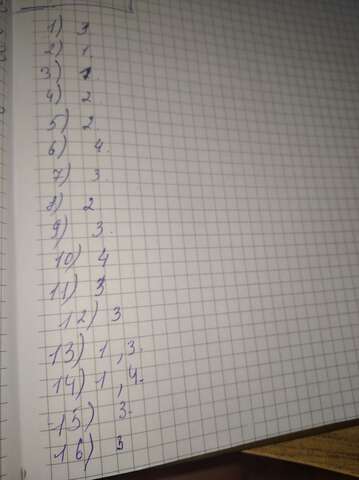 1) 3
2) 1
3) 1
4) 2
5) 2
6) 4.
7) 3.
8) 2
9) 3.
10) 4
11) 3
12) 3
13) 1, 3.
14) 1, 4.
15) 3.
16) 3